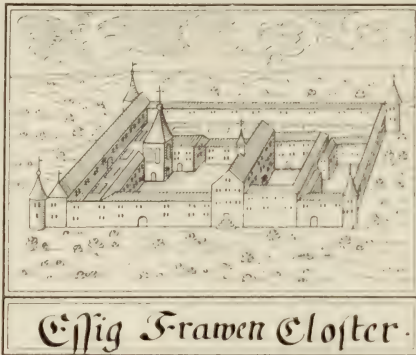 Essig Frawen Closter.